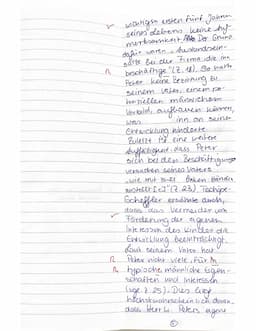 wichtigen ersten fünf Jahren
seines Lebens keine Auf
merksamkeit. Der Grund
dafür waren „Auslandsein-
sätze bei der Firma, die ihn
beschäftigte" (Z. 18). So hatte
Peter keine Beziehung zu
seinem Vater, einem po-
tenziellen männlichen
Vorbild aufbauen können,
was ihn an seiner
Entwicklung hinderte.
Zuletzt ist eine weitere
Auffälligkeit, dass Peter
sich bei den Beschäftigungs
versuchen seines Vaters
wie mit zwei linken Händen
anstellt [...]" (Z. 23).
Scheffler erwähnte auch,
dass das Vermeiden von
Förderung der eigenen
Interessen des Kindes die
Entwicklung beeinträchtigt.
Laut seinem Vater hat
R. Peter nicht viele, für
R. typische männliche Eigen-
schaften und Interessen
(vgl. Z. 25). Dies liegt
höchstwahrscheinlich daran,
dass Herr L. Peters eigene